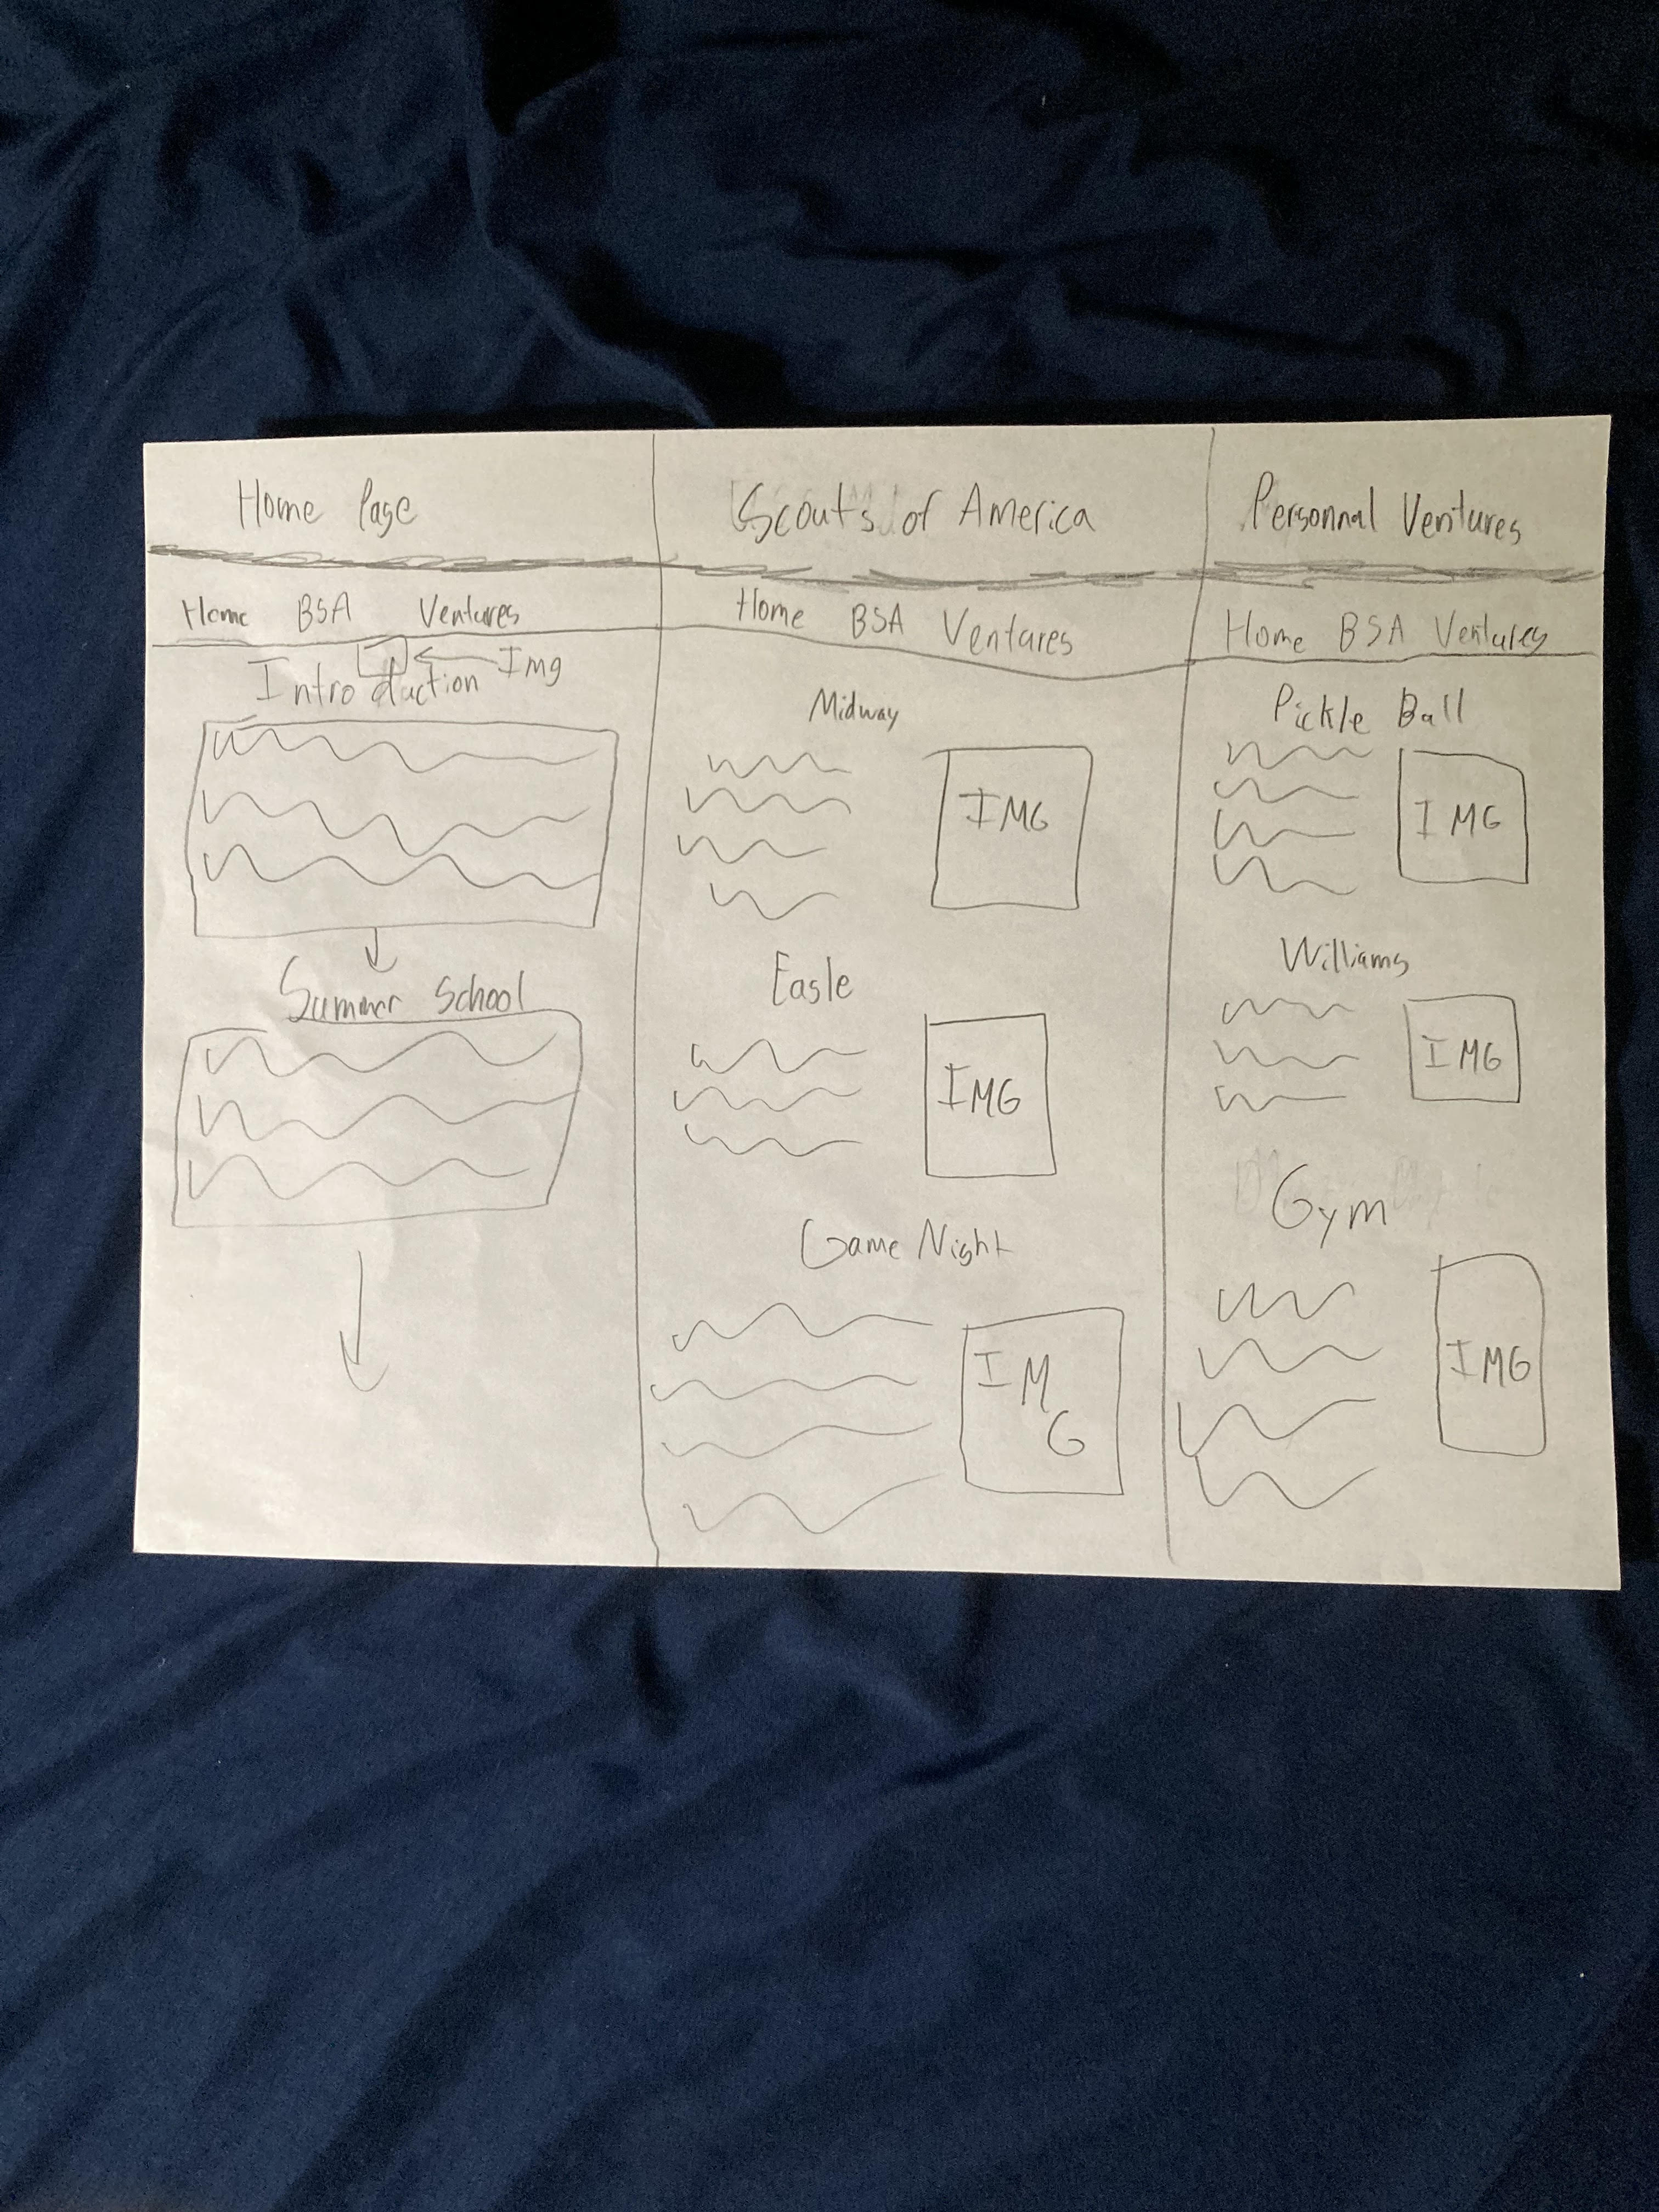 Home Page
Home BSA Ventures
Img
Introduction
Summer School
Scouts of America
Home BSA Ventures
Midway
IMG
Eagle
IMG
Game Night
IMG
Personnal Ventures
Home BSA Ventures
Pickle Ball
IMG
Williams
IMG
Gym
IMG